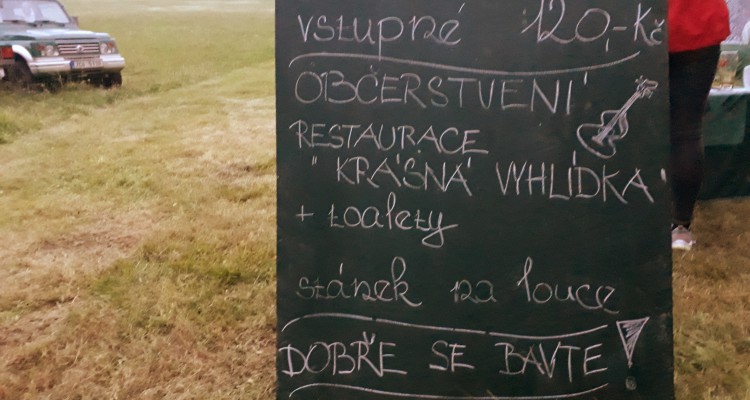 vstupné 120,-Kč
OBČERSTVENÍ
RESTAURACE
" KRÁSNÁ VYHLÍDKA"
+ toalety
stánek na louce
DOBŘE SE BAVTE!